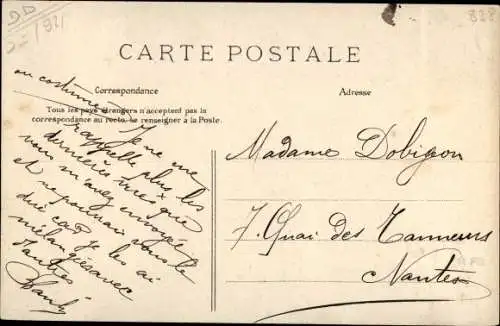 DD
92
828
CARTE POSTALE
Correspondance
Adresse
Tous les pays étrangers n'acceptent pas la
correspondance au recto. Se renseigner à la Poste.
ou costumes
Je ne me
rappelle plus les
dernières vues que
vous m'avez envoyé
et ne pouvais vous le
dire car je les ai
mélangées avec
d'autres
Madame Dobigeon
7. Quai des Tanneurs
Nantes